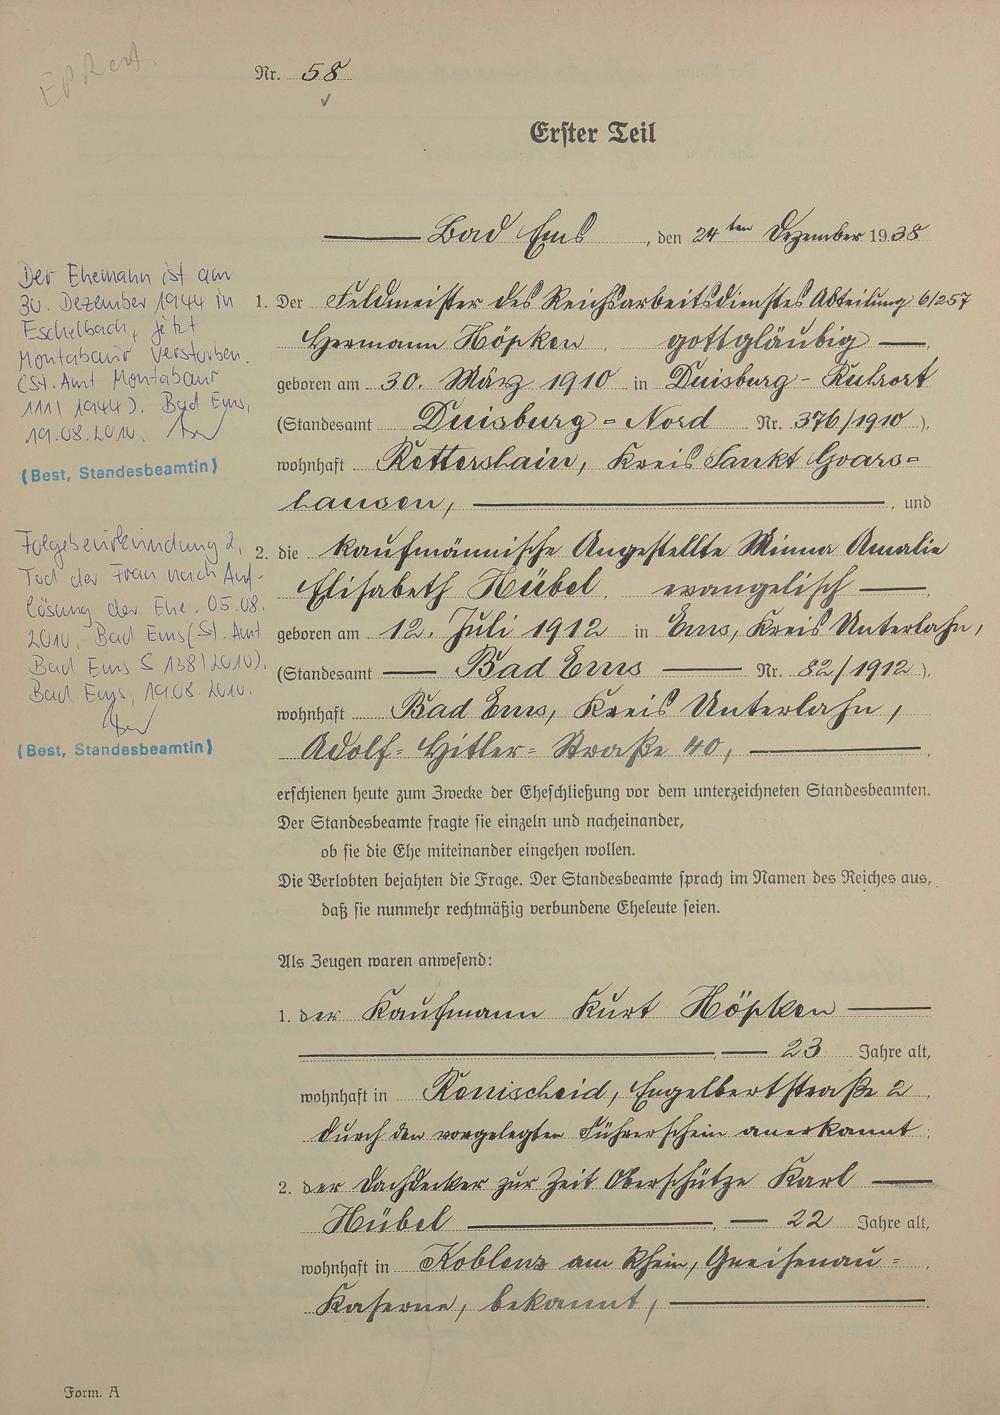 Nr. 58
Erster Teil
Bad Ems, den 24ten Dezember 1938
Der Ehemann ist am
30. Dezember 1944 in
Eschelbach, jetzt
Montabaur verstorben.
(St. Amt Montabaur
111/1944). Bad Ems,
19.08.2010.
(Best, Standesbeamtin)
Folgebeurkundung 2,
Tod der Frau nach Auf-
lösung der Ehe. 05.08.
2010, Bad Ems (St. Amt
Bad Ems S 138/2010).
Bad Ems, 19.08.2010.
(Best, Standesbeamtin)
1. Der Feldmeister des Reichsarbeitsdienstes Abteilung 6/257
Hermann Höpken gottgläubig
geboren am 30. März 1910 in Duisburg-Ruhrort
(Standesamt Duisburg-Nord Nr. 376/1910),
wohnhaft Rettershain, Kreis Sankt Goars-
hausen, und
2. die kaufmännische Angestellte Minna Amalie
Elisabeth Hübel evangelisch
geboren am 12. Juli 1912 in Ems, Kreis Unterlahn,
(Standesamt Bad Ems Nr. 82/1912),
wohnhaft Bad Ems, Kreis Unterlahn,
Adolf-Hitler-Straße 40,
erschienen heute zum Zwecke der Eheschließung vor dem unterzeichneten Standesbeamten.
Der Standesbeamte fragte sie einzeln und nacheinander,
ob sie die Ehe miteinander eingehen wollen.
Die Verlobten bejahten die Frage. Der Standesbeamte sprach im Namen des Reiches aus,
daß sie nunmehr rechtmäßig verbundene Eheleute seien.
Als Zeugen waren anwesend:
1. der Kaufmann Kurt Höpken
23 Jahre alt,
wohnhaft in Remscheid, Engelbertstraße 2
durch den vorgelegten Führerschein anerkannt.
2. der Dachdecker zur Zeit Oberschütze Karl
Hübel, 22 Jahre alt,
wohnhaft in Koblenz am Rhein, Gneisenau-
Kaserne, bekannt,
Form. A